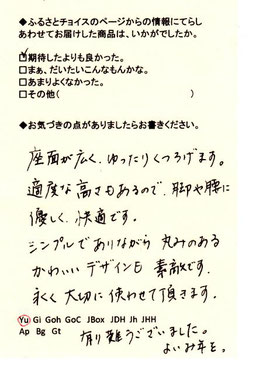 ◆ふるさとチョイスのページからの情報にてらし
あわせてお届けした商品は、いかがでしたか。
☑期待したよりも良かった。
□まぁ、だいたいこんなもんかな。
□あまりよくなかった。
□その他(　　　　　　　　　　)
◆お気づきの点がありましたらお書きください。
座面が広く、ゆったりくつろげます。
適度な高さもあるので、脚や腰に
優しく、快適です。
シンプルでありながら 丸みのある
かわいい デザインも 素敵です。
永く 大切に 使わせて頂きます。
Yu Gi Goh GoC JBox JDH Jh JHH
Ap Bg Gt
有り難うございました。
よいお年を。